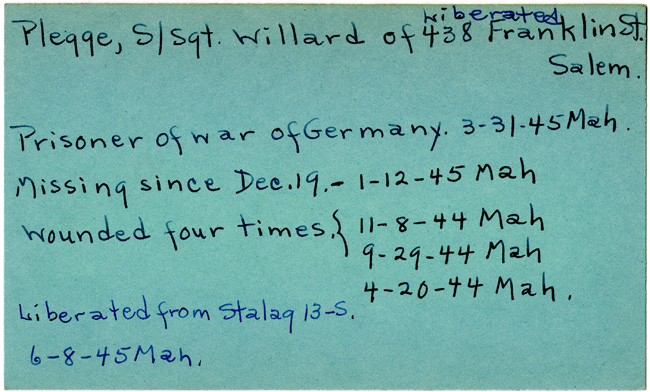 Liberated
Plegge, S/Sgt. Willard of 438 Franklin St.
Salem.
Prisoner of war of Germany. 3-31-45 Mah.
Missing since Dec. 19. - 1-12-45 Mah
Wounded four times. { 11-8-44 Mah
9-29-44 Mah
4-20-44 Mah.
Liberated from Stalag 13-S.
6-8-45 Mah.